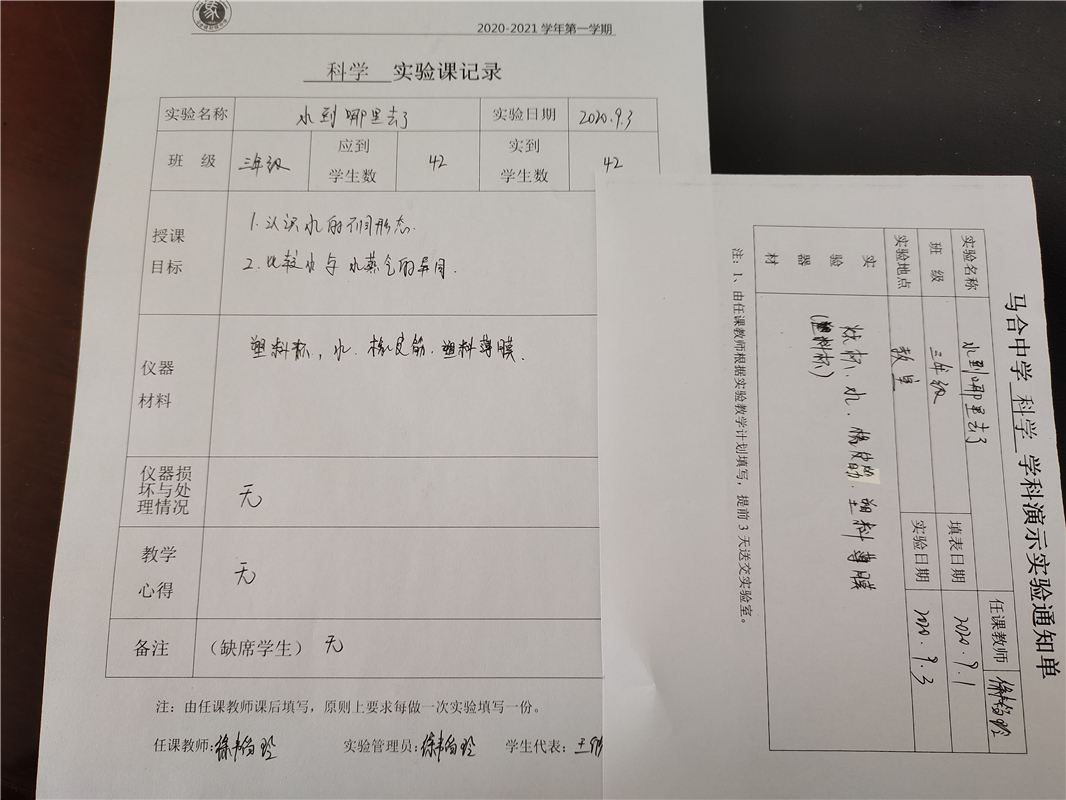 2020-2021 学年第一学期
科学 实验课记录
实验名称 水到哪里去了 实验日期 2020.9.3
班 级 三年级 应到学生数 42 实到学生数 42
授课
目标
1.认识水的不同形态.
2.比较水与水蒸气的异同.
仪器
材料
塑料杯、水、橡皮筋、塑料薄膜.
仪器损
坏与处
理情况
无
教学
心得
无
备注 (缺席学生) 无
注：由任课教师课后填写，原则上要求每做一次实验填写一份。
任课教师: 实验管理员: 学生代表: 王
马合中学 科学 学科演示实验通知单
任课教师
实验名称 水到哪里去了 填表日期 2020.9.1
班 级 三年级 实验日期 2020.9.3
实验地点 教室
实验器材
烧杯、水、橡皮筋、塑料薄膜
(塑料杯)
注：1、由任课教师根据实验教学计划填写，提前 3 天送交实验室。